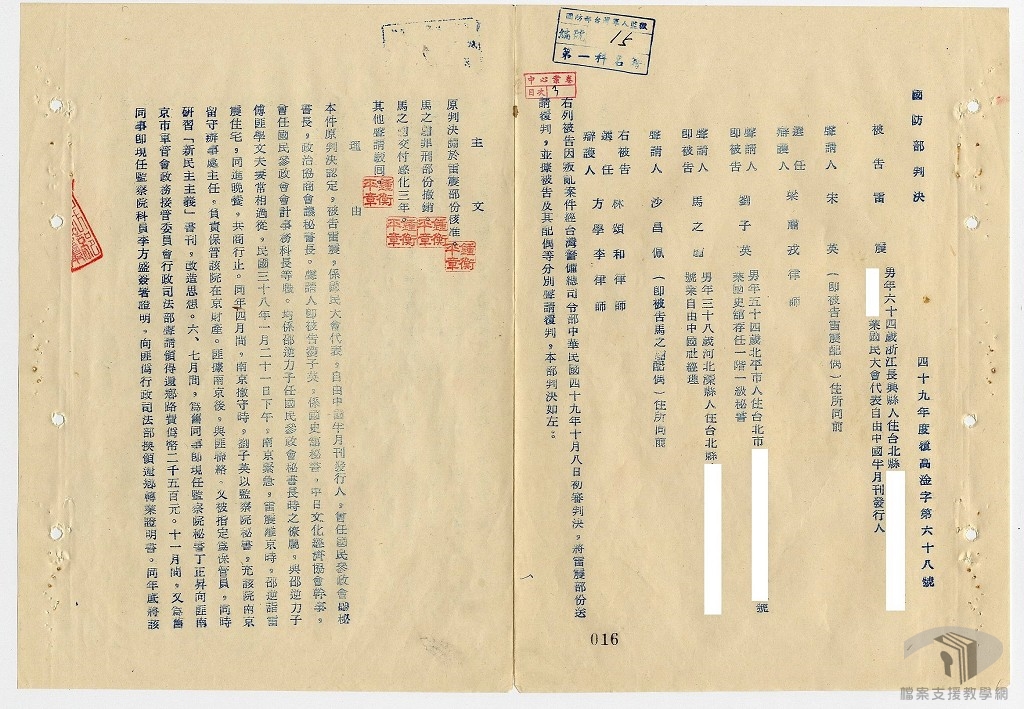 國防部判決
四十九年度覆高淦字第六十八號
被告雷震
男年六十四歲浙江長興縣人住台北縣
業國民大會代表自由中國半月刊發行人
聲請人宋英（即被告雷震配偶）住所同前
選任辯護人梁肅戎律師
聲請人即被告劉子英
男年五十四歲北平市人住台北市號
業國史館存任一階一級秘書
聲請人即被告馬之
男年三十八歲河北灤縣人住台北縣
號業自由中國社經理
聲請人沙昌佩（即被告馬之配偶）住所同前
右被告選任辯護人
林頌和律師
方學李律師
右列被告因叛亂案件經台灣警備總司令部中華民國四十九年十月八日初審判決，將雷震部份送
請覆判，並據被告及其配偶等分別聲請覆判，本部判決如左：
主文
原判決關於雷震部份核准。
馬之罪刑部份撤銷
馬之交付感化三年
其他聲請駁回
理由
本件原判決認定，被告雷震，係國民大會代表，自由中國半月刊發行人，曾任國民參政會副秘
書長，政治協商會議秘書長。聲請人即被告劉子英，係國史館秘書，平日文化經濟協會幹事，
曾任國民參政會會計事務科長等職。均係邵逆力子任國民參政會秘書長時之僚屬，與邵逆力子
傅匪學文夫妻常相過從，民國三十八年一月二十一日下午，南京緊急，雷震離京時，邵逆詣雷
震住宅，同進晚餐，共商行止。同年四月間，南京撤守時，劉子英以監察院秘書，充該院南京
留守辦事處主任，負責保管該院在京財產。匪據南京後，與匪聯絡，又被指定為保管員，同時
研習「新民主主義」書刊，改造思想。六、七月間，為舊同事即現任監察院秘書丁正昇向匪南
京市軍管會政務接管委員會行政司法部聲請領得還鄉路費偽幣二千五百元。十一月間，又為舊
同事即現任監察院科員李方盛簽署證明，向匪偽行政司法部換領還鄉轉業證明書。同年底將該
國防部台灣軍人監獄
編號 15
第一科名籍
中心業卷
目次 3
鍾衡平章
鍾衡平章
鍾衡平章
016
檔案支援教學網